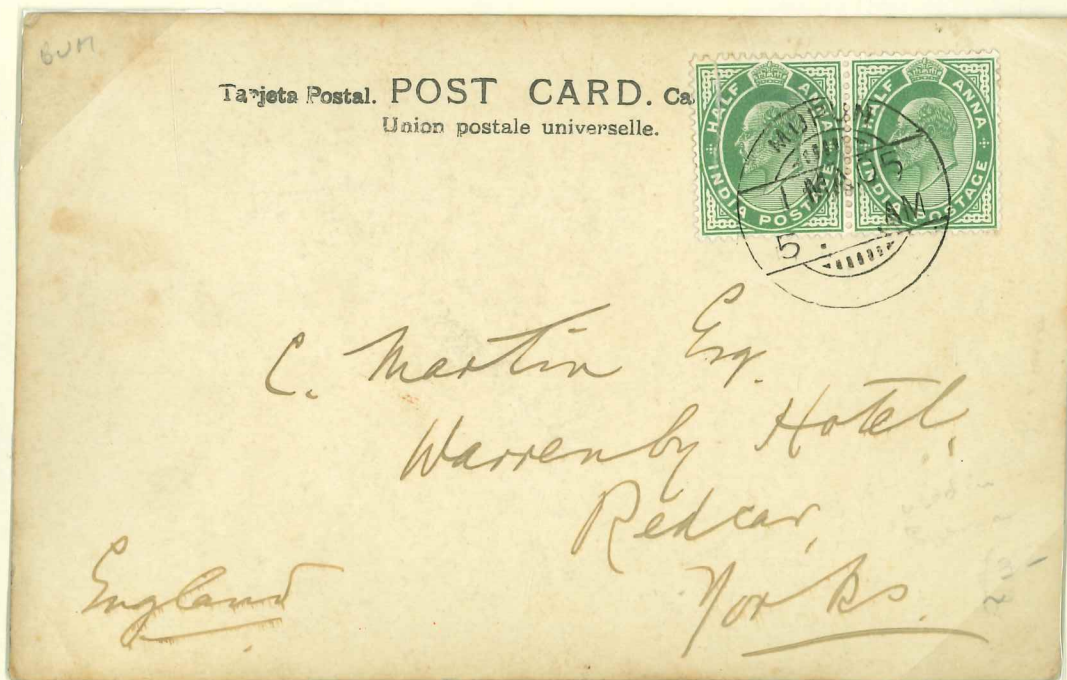 BUM
Tarjeta Postal. POST CARD. Ca
Union postale universelle.
HALF ANNA
INDIA POSTAGE
HALF ANNA
INDIA POSTAGE
5. AM
C. Martin Esq.
Warrenby Hotel,
Redcar,
Yorks.
England